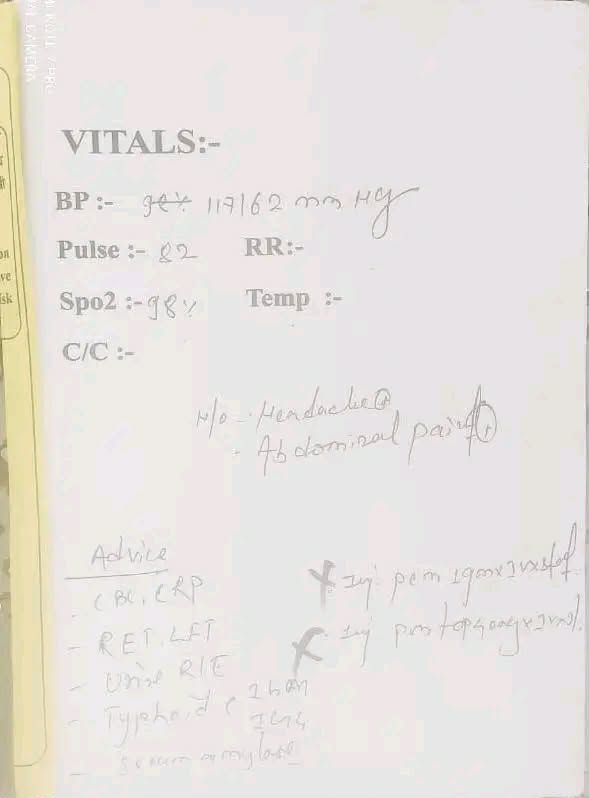 VITALS:-
BP :- 98% 117/62 mm Hg
Pulse :- 82 RR:-
Spo2 :- 98% Temp :-
C/C :-
H/O - Headache +
- Abdominal pain +
Advice
- CBC, CRP
- RFT, LFT
- Urine R/E
- Typhoid IgM
IgG
- Serum amylase
X Inj. pcm 1gm x IV x stat
X Inj pantop 40mg x IV x